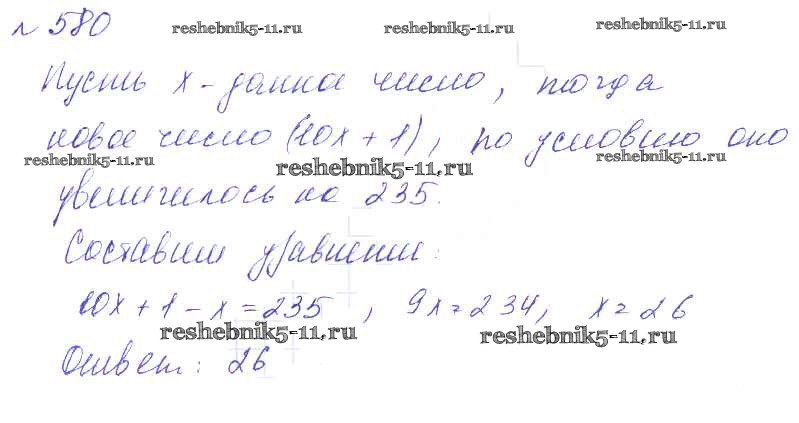 № 580
reshebnik5-11.ru reshebnik5-11.ru reshebnik5-11.ru
Пусть x - данное число, тогда
новое число (10x + 1), по условию оно
reshebnik5-11.ru reshebnik5-11.ru reshebnik5-11.ru
увеличилось на 235.
Составим уравнение:
10x + 1 - x = 235, 9x = 234, x = 26
reshebnik5-11.ru reshebnik5-11.ru
Ответ: 26